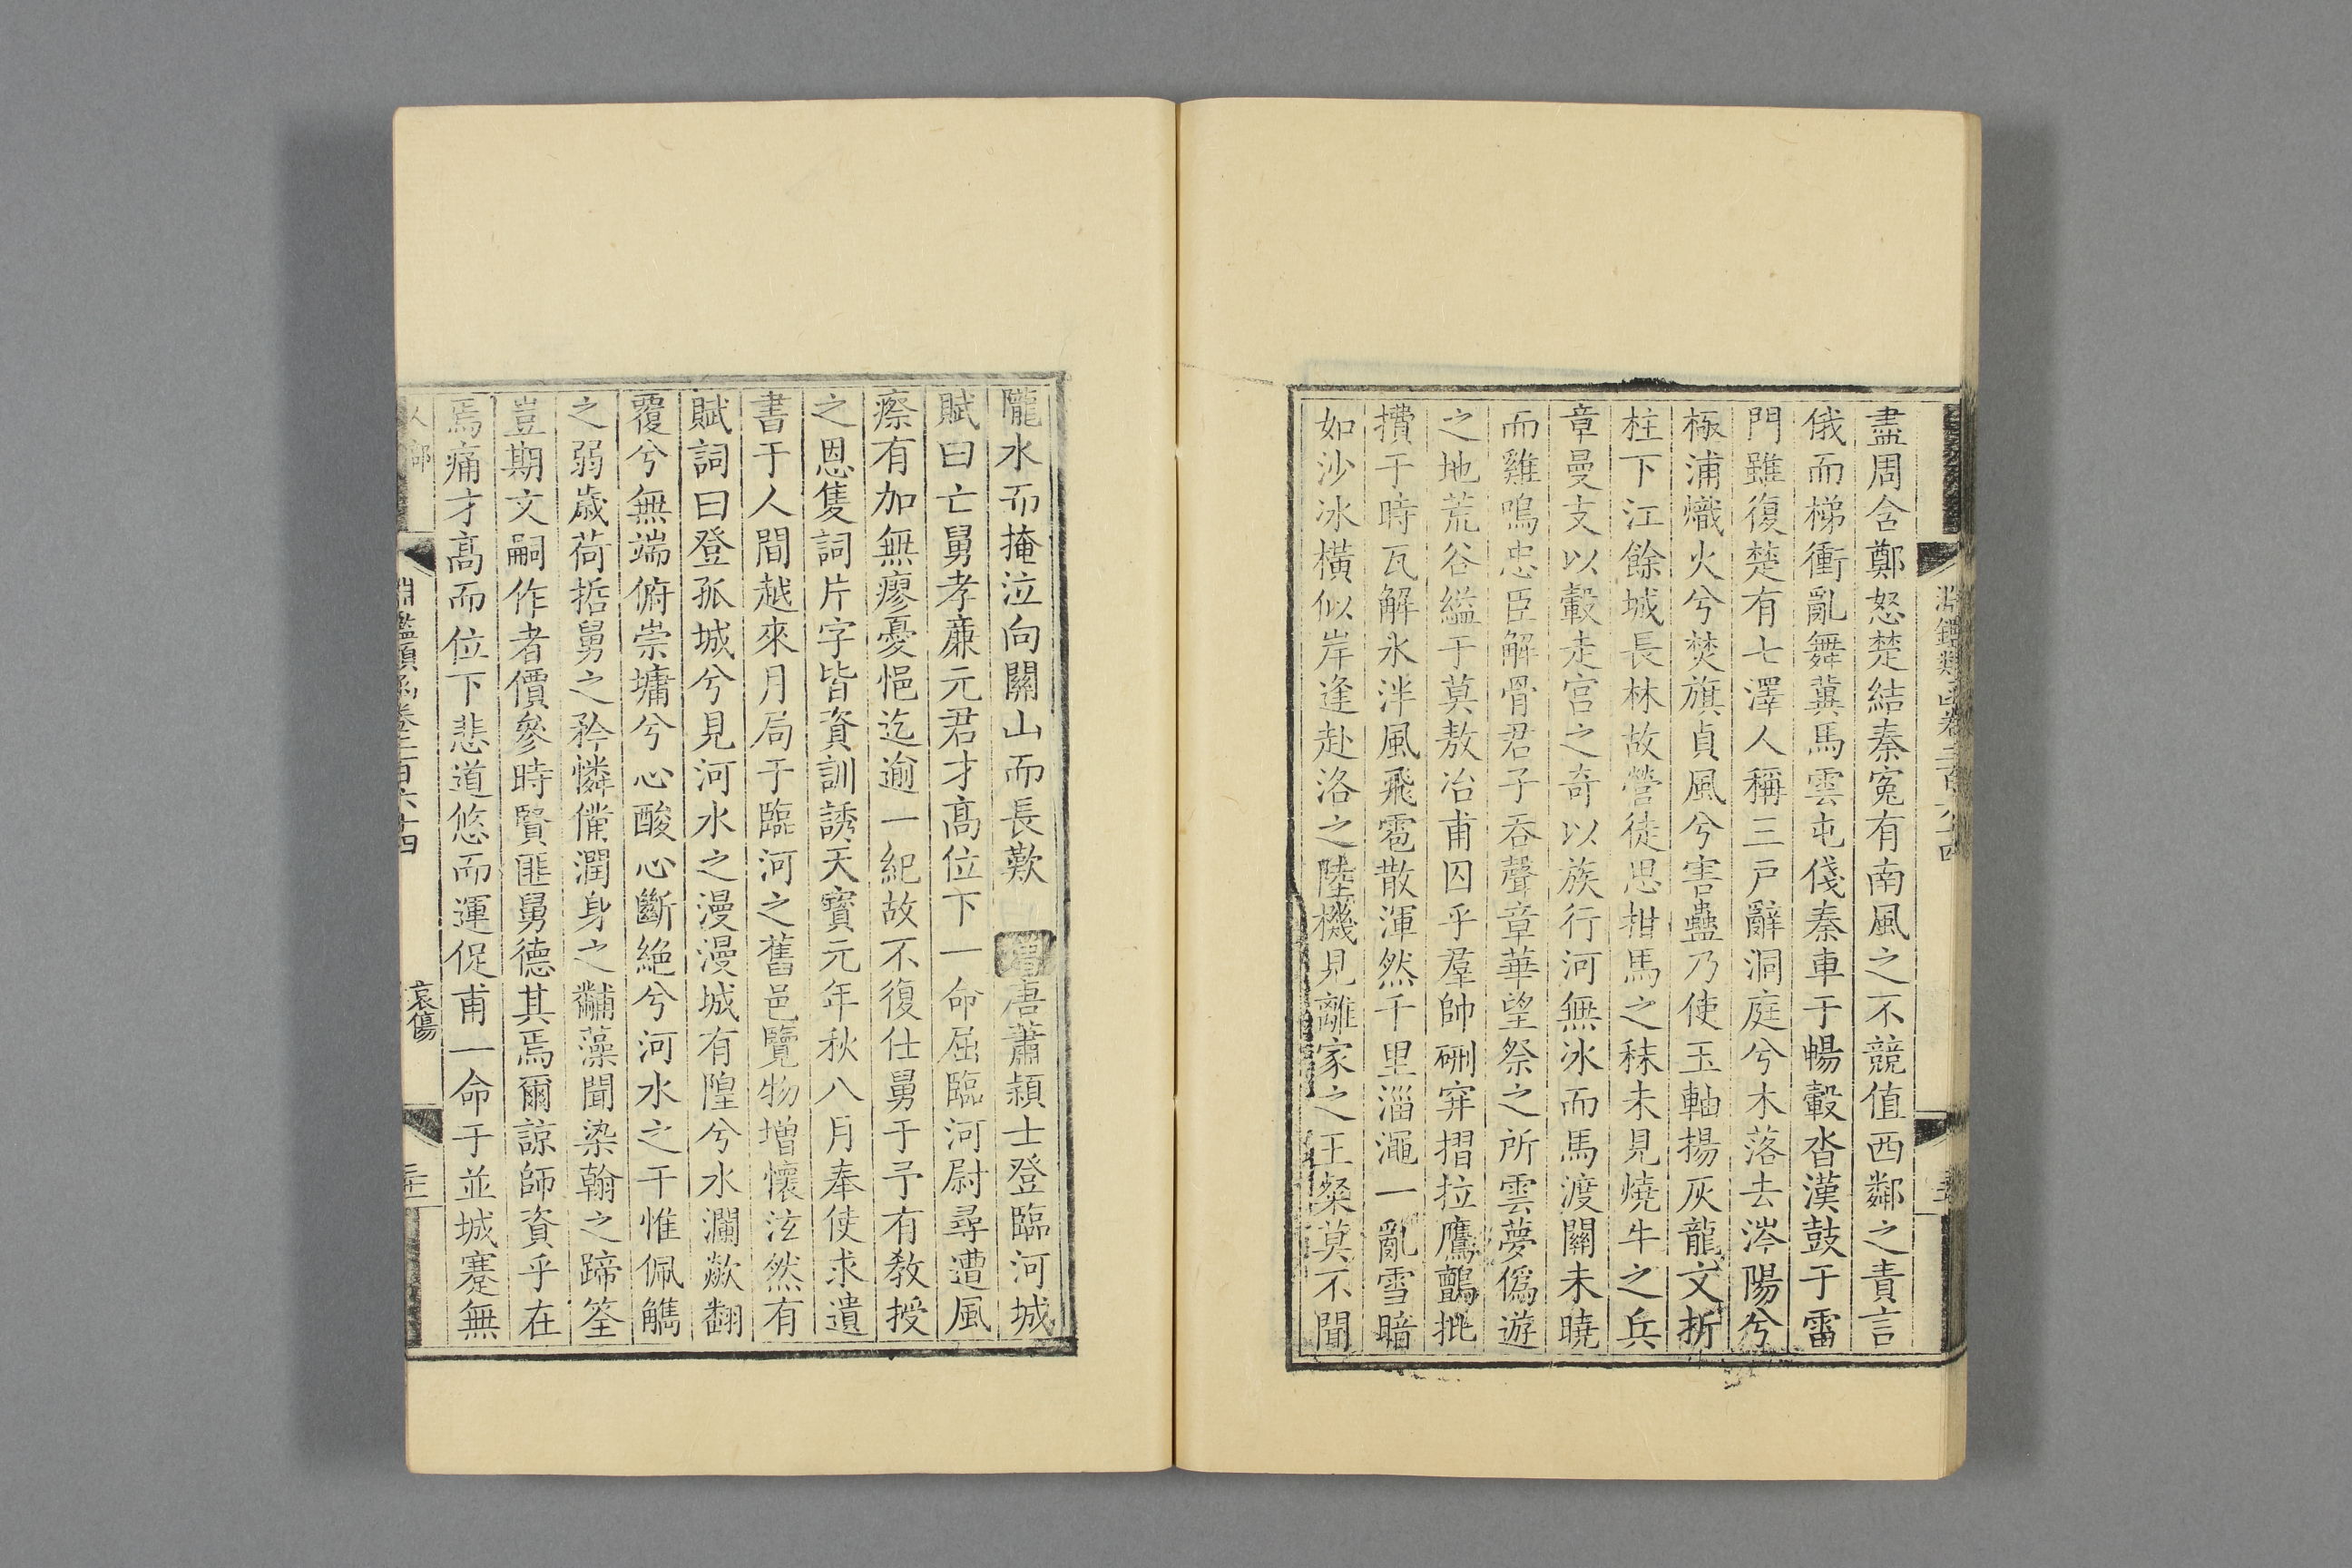 盡周含鄭怒楚結秦寃有南風之不競值西鄰之責言
俄而梯衝亂舞冀馬雲屯俴秦車于暢轂沓漢鼓于雷
門雖復楚有七澤人稱三戶辭洞庭兮木落去涔陽兮
極浦熾火兮焚旗貞風兮害蠱乃使玉軸揚灰龍文折
柱下江餘城長林故營徒思拑馬之秣未見燒牛之兵
章曼支以轂走宮之奇以族行河無冰而馬渡關未曉
而雞鳴忠臣解骨君子吞聲章華望祭之所雲夢僞遊
之地荒谷縊于莫敖冶甫囚乎羣帥硎穽摺拉鷹鸇批
㩌于時瓦解氷泮風飛雹散渾然千里淄澠一亂雪暗
如沙冰橫似岸逢赴洛之陸機見離家之王粲莫不聞
隴水而掩泣向關山而長歎 增唐蕭穎士登臨河城
賦曰亡舅孝亷元君才髙位下一命屈臨河尉尋遭風
瘵有加無瘳憂悒迄逾一紀故不復仕舅于予有教授
之恩隻詞片字皆資訓誘天寶元年秋八月奉使求遺
書于人間越來月局于臨河之舊邑覽物増懷泫然有
賦詞曰登孤城兮見河水之漫漫城有隍兮水瀾歘翻
覆兮無端俯崇墉兮心酸心斷絶兮河水之干惟佩觿
之弱歲荷哲舅之矜憐儻潤身之黼藻聞染翰之蹄筌
豈期文嗣作者價參時賢匪舅德其焉爾諒師資乎在
焉痛才髙而位下悲道悠而運促甫一命于並城蹇無
哀傷